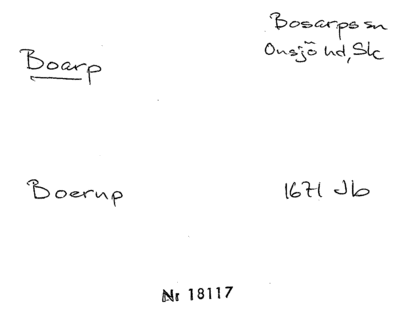 Boarp
Bosarps sn
Onsjö hd, Sk
Boerup
1671 Jb
Nr 18117